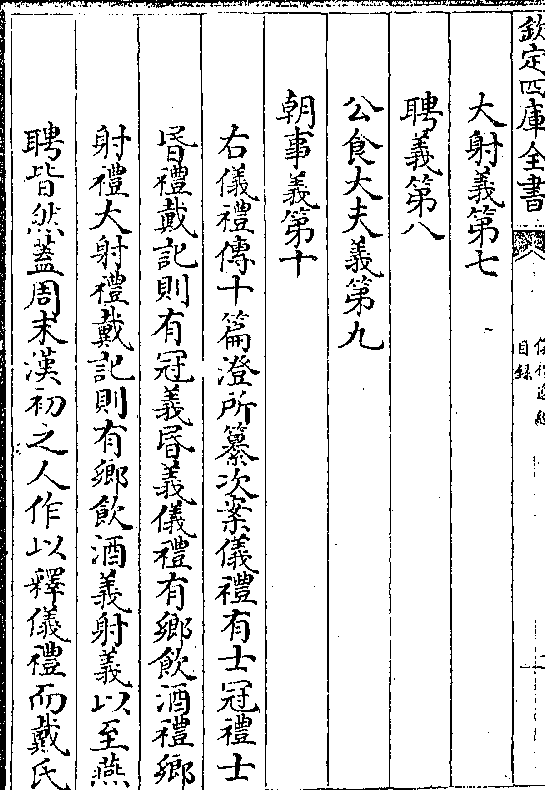 欽定四庫全書
儀禮逸經
目録
大射義第七
聘義第八
公食大夫義第九
朝事義第十
右儀禮傳十篇澄所纂次案儀禮有士冠禮士
昏禮戴記則有冠義昏義儀禮有鄉飲酒禮鄉
射禮大射禮戴記則有鄉飲酒義射義以至燕
聘皆然蓋周末漢初之人作以釋儀禮而戴氏